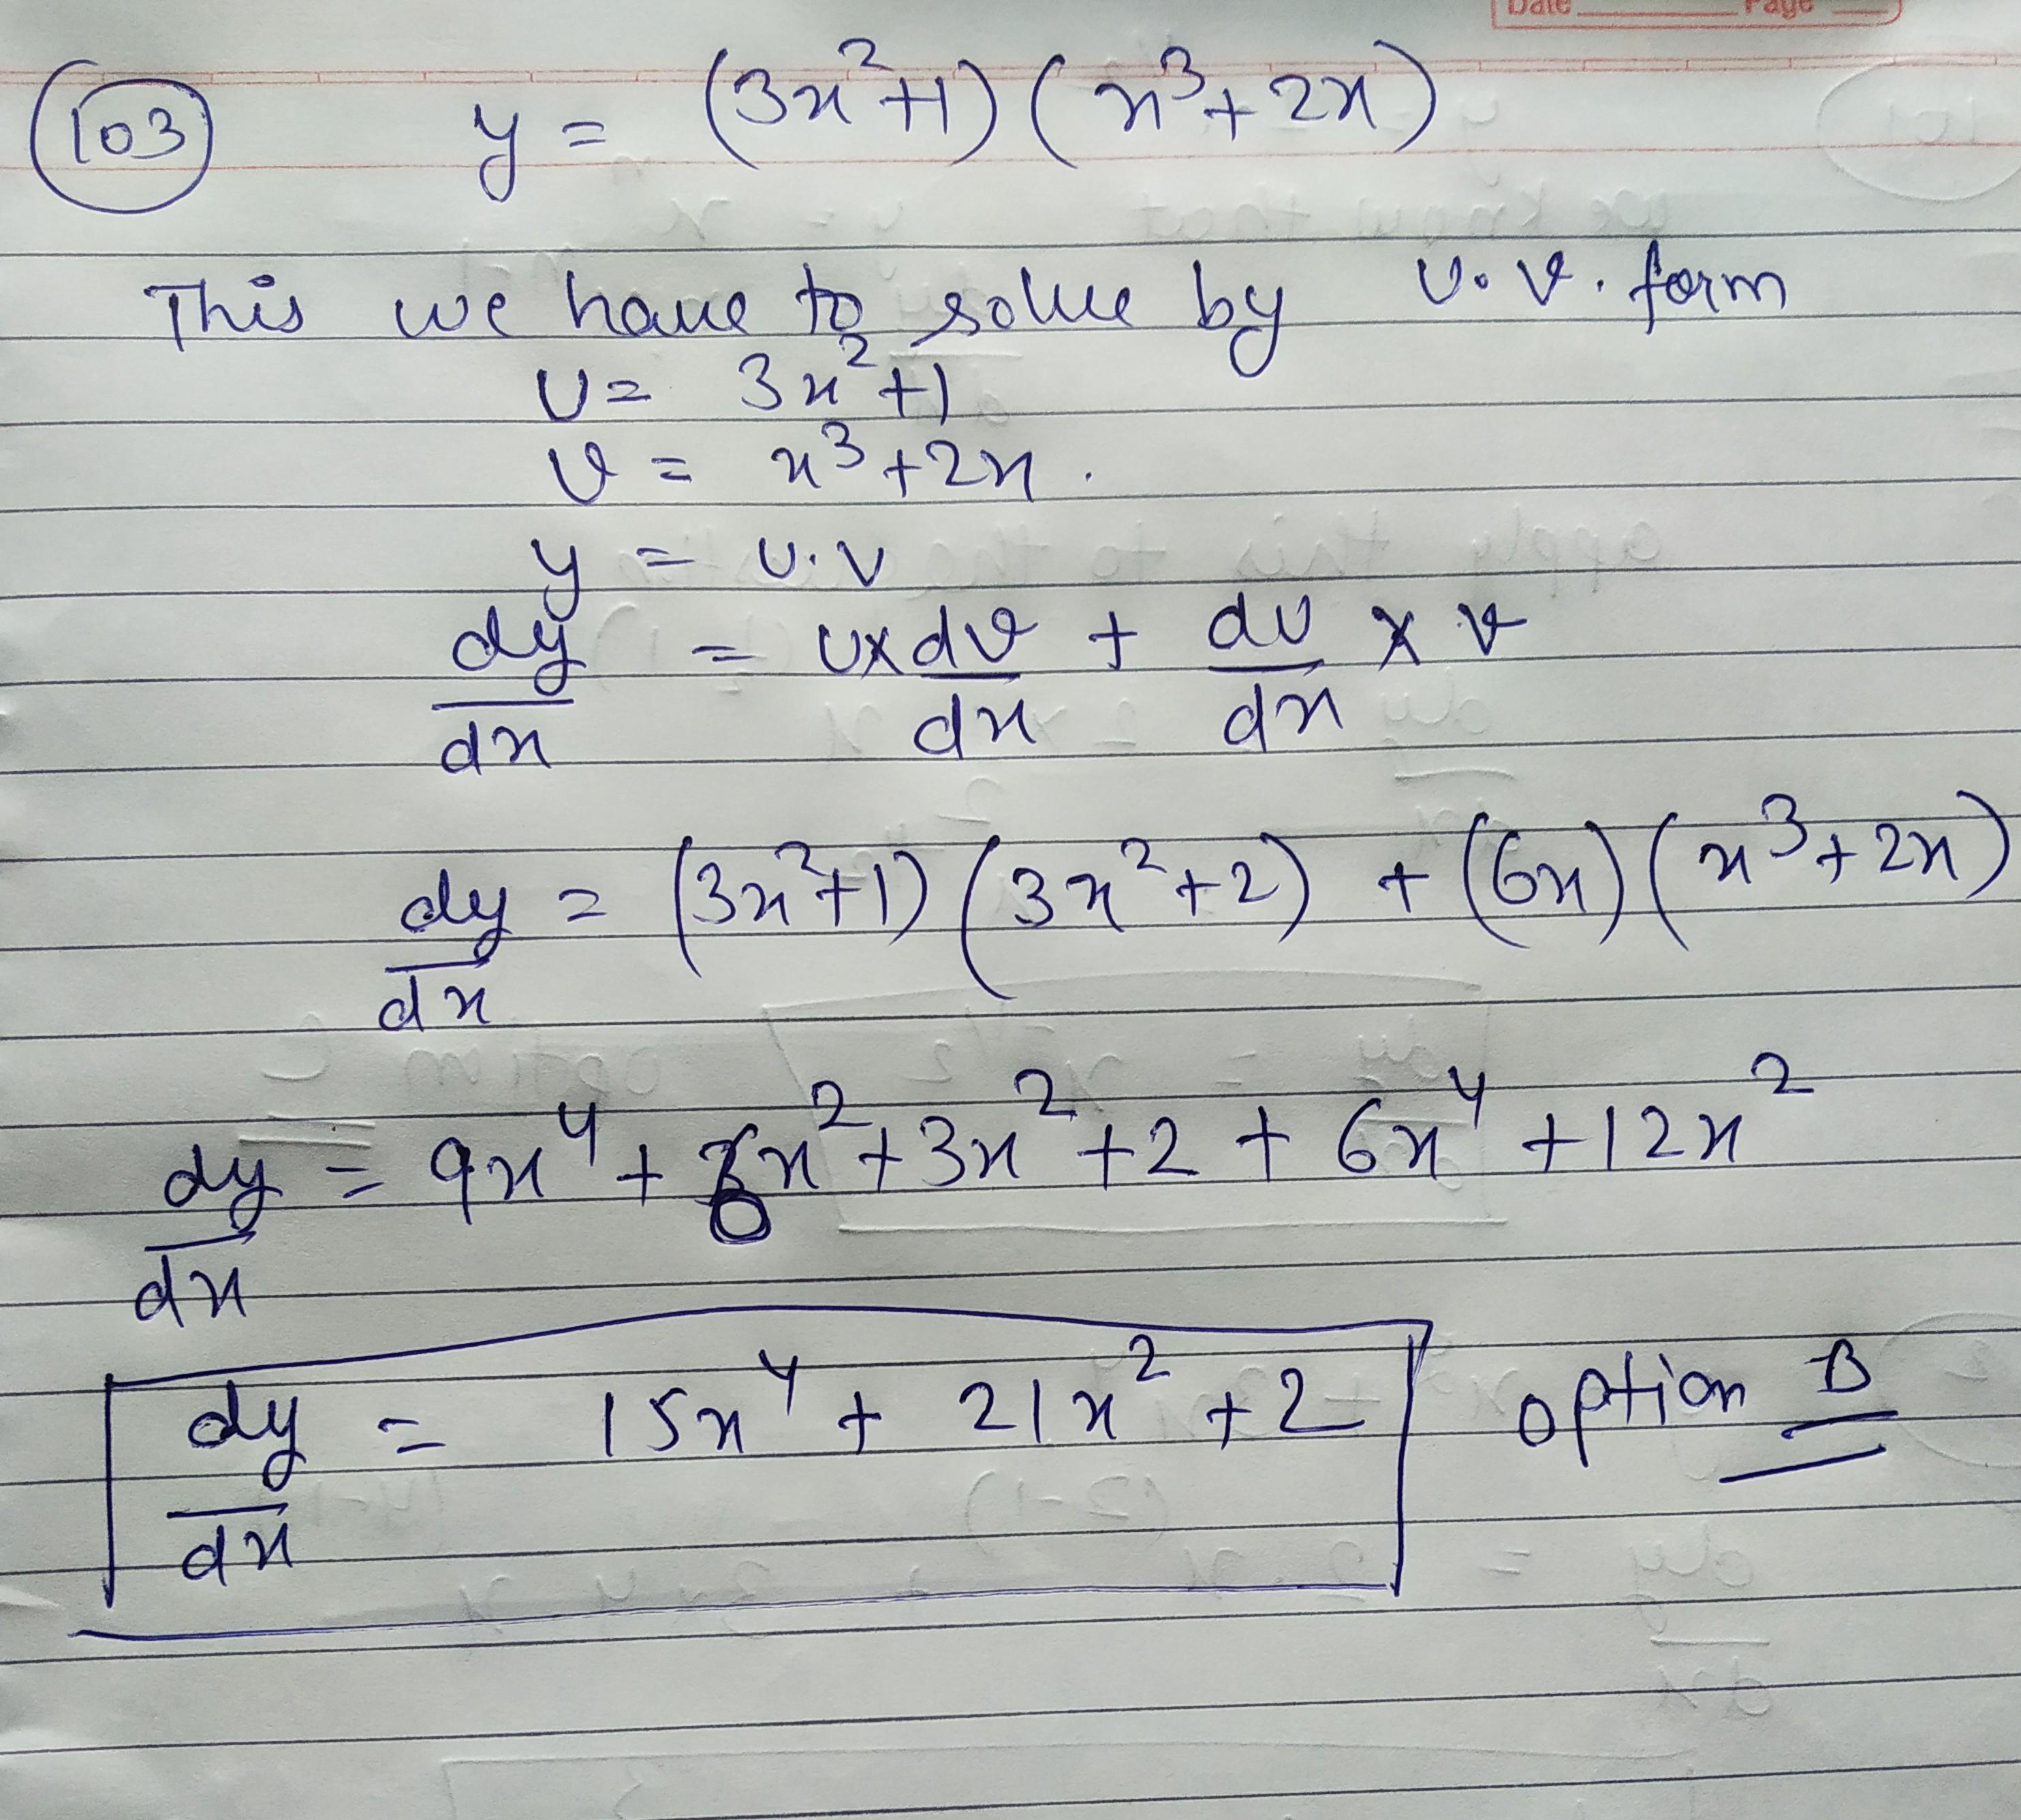 Date Page
103 y = (3x²+1) (x³+2x)
This we have to solve by U.V. form
U = 3x²+1
V = x³+2x.
y = U.V
dy/dx = U×dv/dx + dU/dx × v
dy/dx = (3x²+1) (3x²+2) + (6x) (x³+2x)
dy/dx = 9x⁴ + 6x² + 3x² + 2 + 6x⁴ + 12x²
dy/dx = 15x⁴ + 21x² + 2 option B